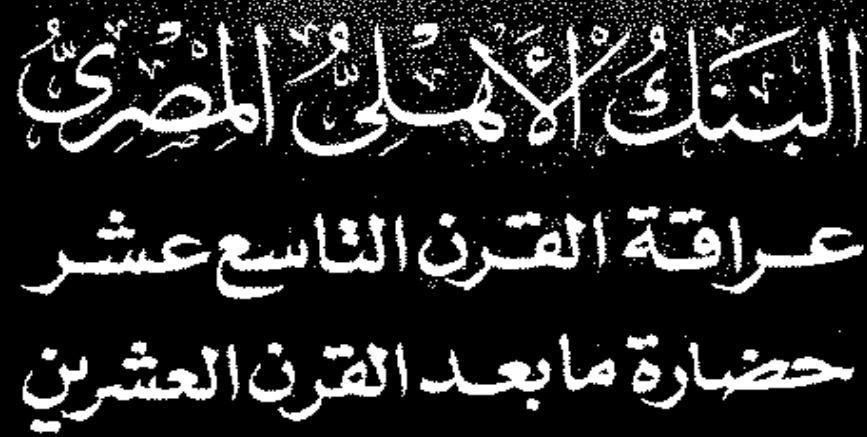 البنكُ الأهليُّ المِصْرِيُّ
عراقة القرن التاسع عشر
حضارة ما بعد القرن العشرين